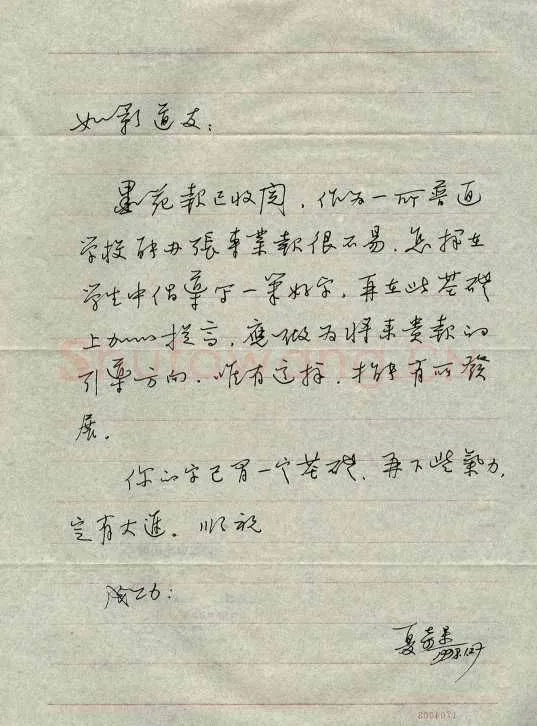 如影道友：
墨苑报已收阅，作为一所普通
学校能办张专业报很不易，怎样在
学生中倡导写一笔好字，再在此基础
上加以提高，应做为将来贵报的
引导方向，唯有这样，才能有所發
展。
你的字已有一定基礎，再下些氣力，
定有大進。順祝
成功：
夏
1998.12.7
Shufawang.cn
1704003